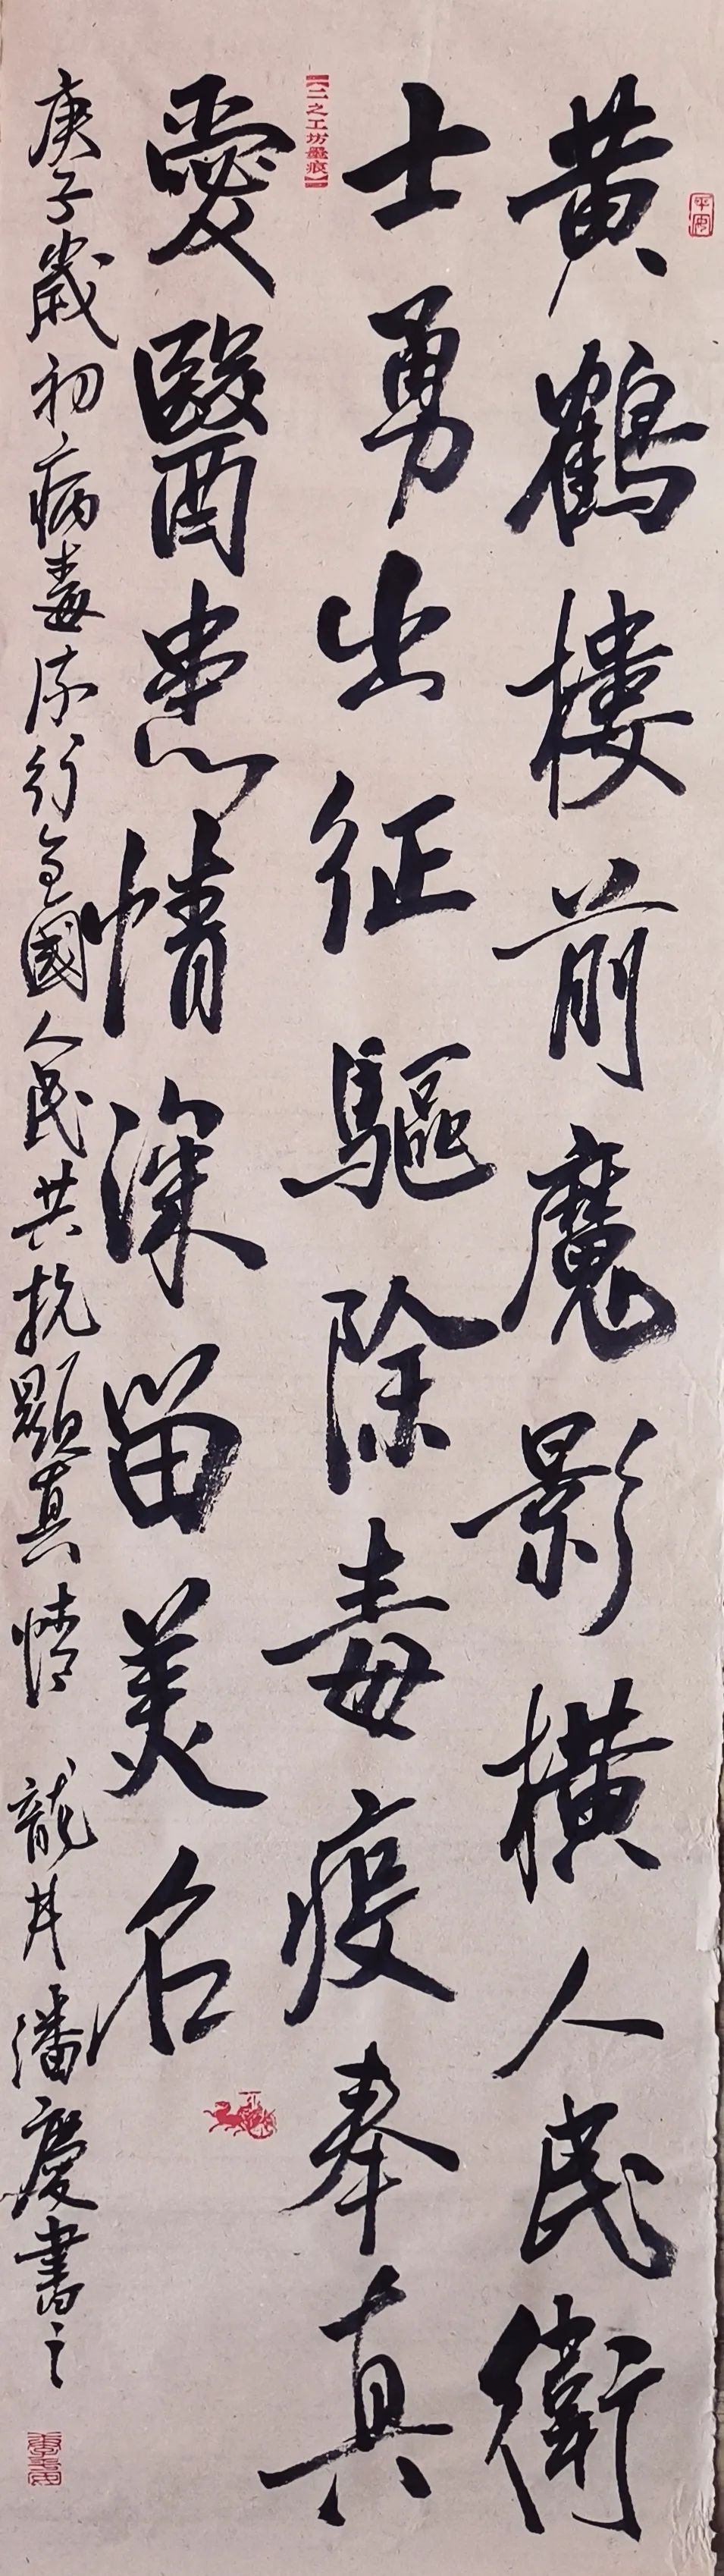 黄鶴樓前魔影橫人民衛
士勇出征驅除毒疫奉真
愛醫患情深留美名
庚子歲初病毒流行全國人民共抗顯真情 龍井潘慶書之
【二之工坊墨痕】
平安